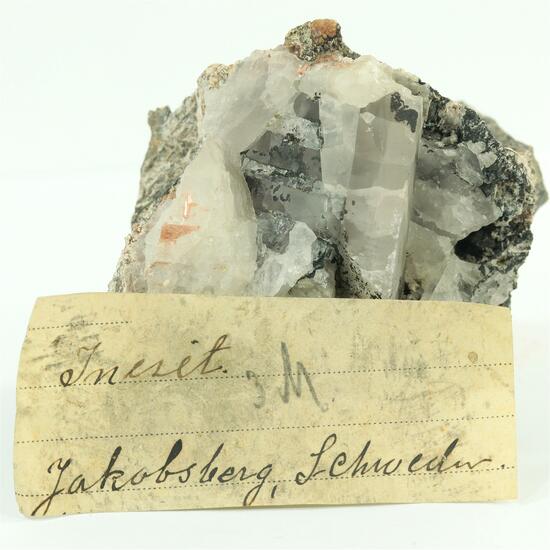 Inesit.
3 M.
Jakobsberg, Schweden.